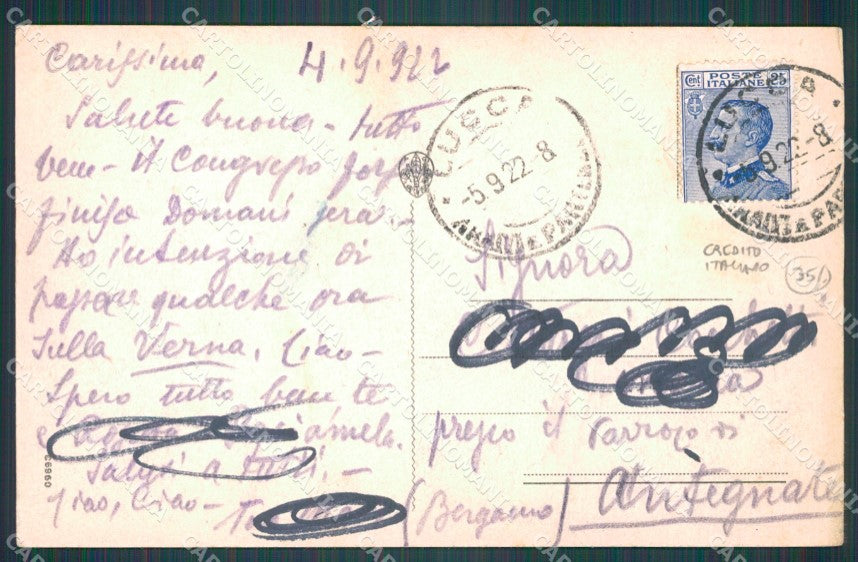 Carissima, 4.9.922
Salute buona - tutto
bene - il Congresso forse
finisce Domani sera -
Ho intenzione di
passare qualche ora
sulla Verna. Ciao -
Spero tutto bene te
e
Saluti a tutti. -
Ciao, Ciao -
POSTE ITALIANE
Cent 25
LUCCA
-5.9.22-8
CREDITO
ITALIANO
35
Signora
presso il Parroco di
Antegnate
(Bergamo)
03990
CARTOLINOMANIA